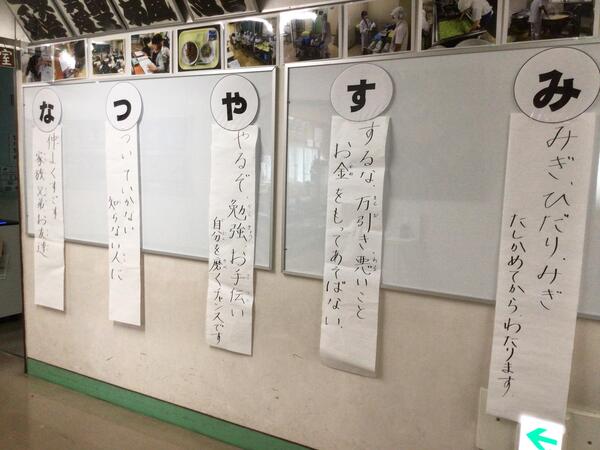 な
仲よくすごす
家族 兄弟 お友達
つ
ついていかない
知らない人に
や
やるぞ、勉強、お手伝い
自分を磨くチャンスです
す
するな、万引き、悪いこと
お金をもってあそばない、
み
みぎ、ひだり、みぎ
たしかめてから、わたります
室